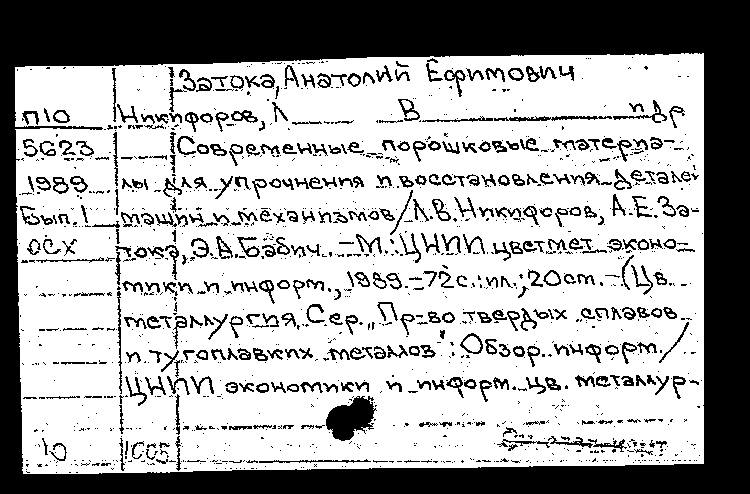 Затока, Анатолий Ефимович
П10 Никифоров, Л В и др
5623 Современные порошковые материа-
1989 лы для упрочнения и восстановления деталей
Вып. 1 машин и механизмов/Л.В.Никифоров, А.Е.За-
ОСХ тока, Э.А.Бабич. -М.: ЦНИИ цветмет эконо-
мики и информ., 1989.-72с.:ил.; 20 ст. -(Цв.
металлургия. Сер. „Пр-во твердых сплавов
и тугоплавких металлов": Обзор. информ./
ЦНИИ экономики и информ. цв. металлур-
10 1005